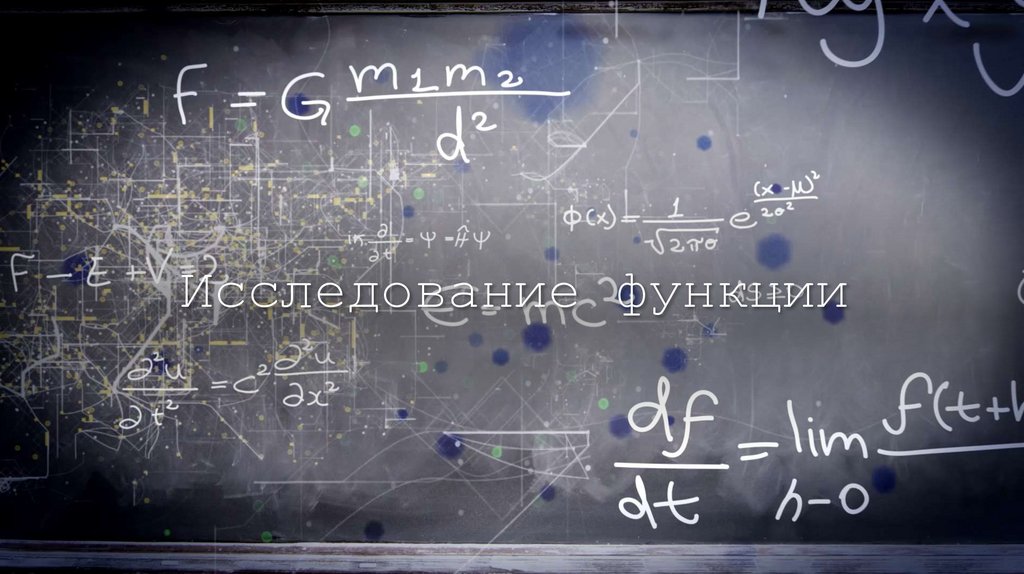 F = G m₁m₂ / d²
Φ(x) = 1 / √2πσ e (x-μ)² / 2σ²
∂ / ∂t = Ψ = ĤΨ
F - E + V = 2
Исследование функции
E = mc²
∂²u / ∂t² = c² ∂²u / ∂x²
df / dt = lim h→0 f(t+h